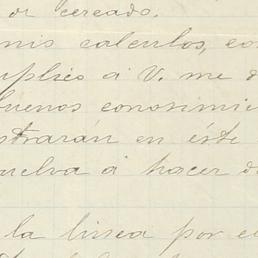 de cercado.
mis calculos, co
uplico á V. me d
buenos conosimie
strarán en éste
uelva á hacer d
la linea por e